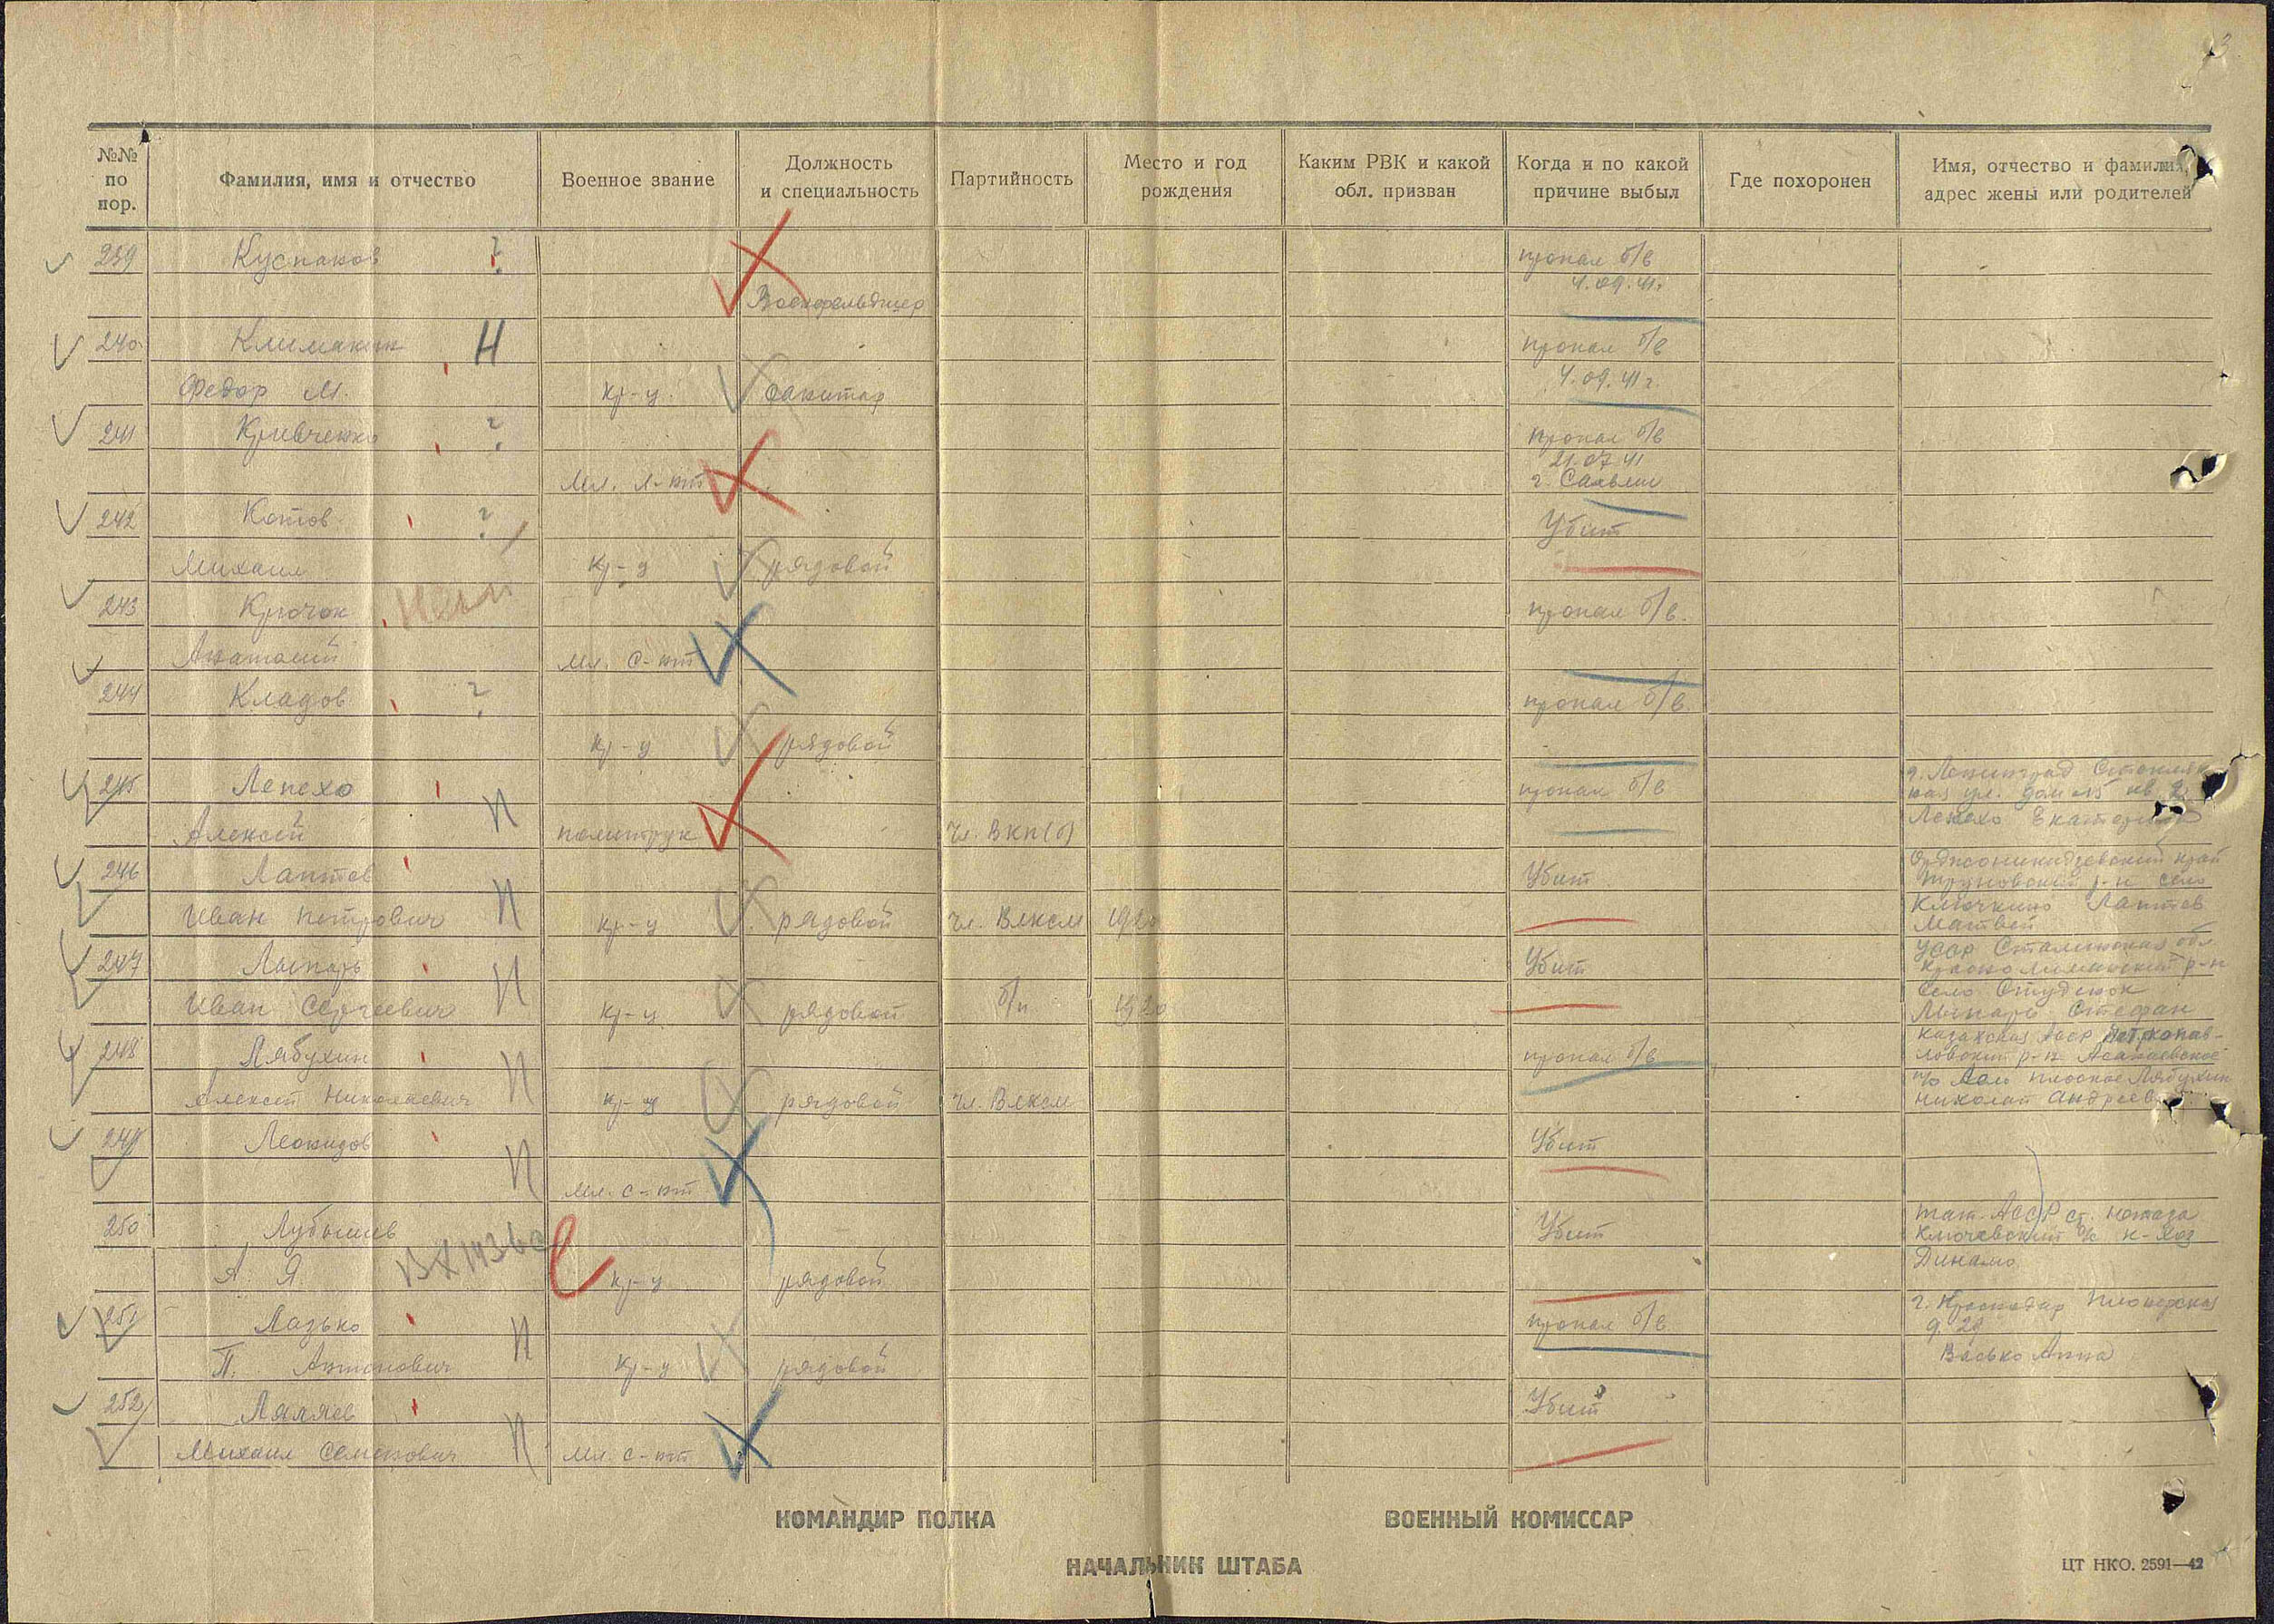 3
№№ по пор.
Фамилия, имя и отчество
Военное звание
Должность и специальность
Партийность
Место и год рождения
Каким РВК и какой обл. призван
Когда и по какой причине выбыл
Где похоронен
Имя, отчество и фамилия, адрес жены или родителей
239 Куспаков ? пропал б/в
Военфельдшер 4.09.41г.
240 Климакин Н пропал б/в
Федор М. кр-ц санитар 4.09.41г.
241 Кривченко ? пропал б/в
21.07.41
Мл. л-нт г.
242 Котов ? Убит
Михаил кр-ц рядовой
243 Крючок пропал б/в.
Анатолий мл. с-нт
244 Кладов ? пропал б/в
кр-ц рядовой
245 Лепехо пропал б/в г. Ленинград
ул. дом 15 кв. 2
Алексей политрук чл. ВКП(б) Лепехо
246 Лаптев Убит Орджоникидзевский край
р-н село
Иван Петрович кр-ц рядовой чл. ВЛКСМ 1920 Лаптев
Матвей
247 Лыпарь Убит УССР Сталинская обл
р-н
Иван Сергеевич кр-ц рядовой б/п 1920 село Студенок
Лыпарь Стефан
248 Лябухин пропал б/в Казахская АССР Петропав-
ловский р-н
п/о Лябухин
Алексей Николаевич кр-ц рядовой чл. ВЛКСМ Николай Андреев
249 Леонидов Убит
мл. с-нт
250 Лубышев Убит Тат. АССР ст.
Ключевский к-хоз
А. Я. кр-ц рядовой Динамо
251 Лазько пропал б/в. г. Краснодар Пионерская
д. 29
П. Антонович кр-ц рядовой Васько Анна
252 Ляляев Убит
Михаил Семенович мл. с-нт
КОМАНДИР ПОЛКА
ВОЕННЫЙ КОМИССАР
НАЧАЛЬНИК ШТАБА
ЦТ НКО. 2591—42